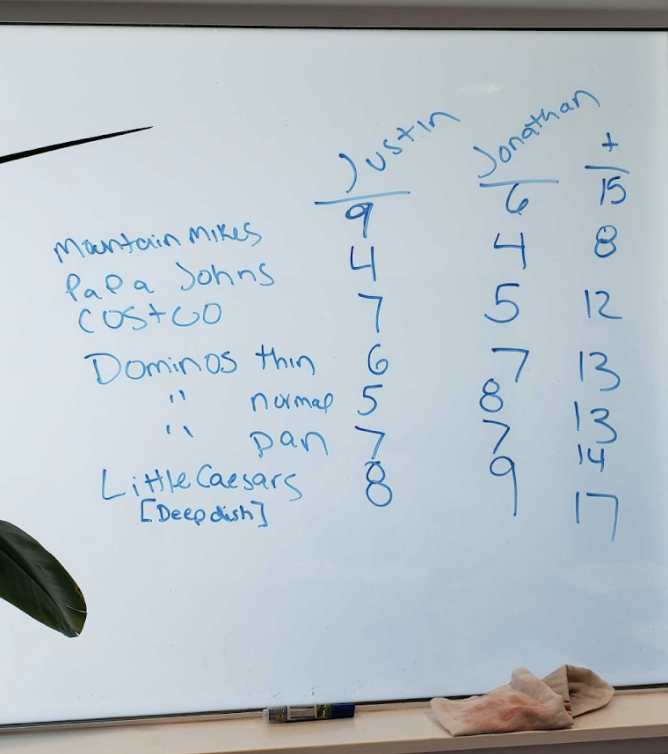 Justin Jonathan +
Mountain Mikes 9 6 15
Papa Johns 4 4 8
Costco 7 5 12
Dominos thin 6 7 13
" normal 5 8 13
" pan 7 7 14
Little Caesars 8 9 17
[Deep dish]